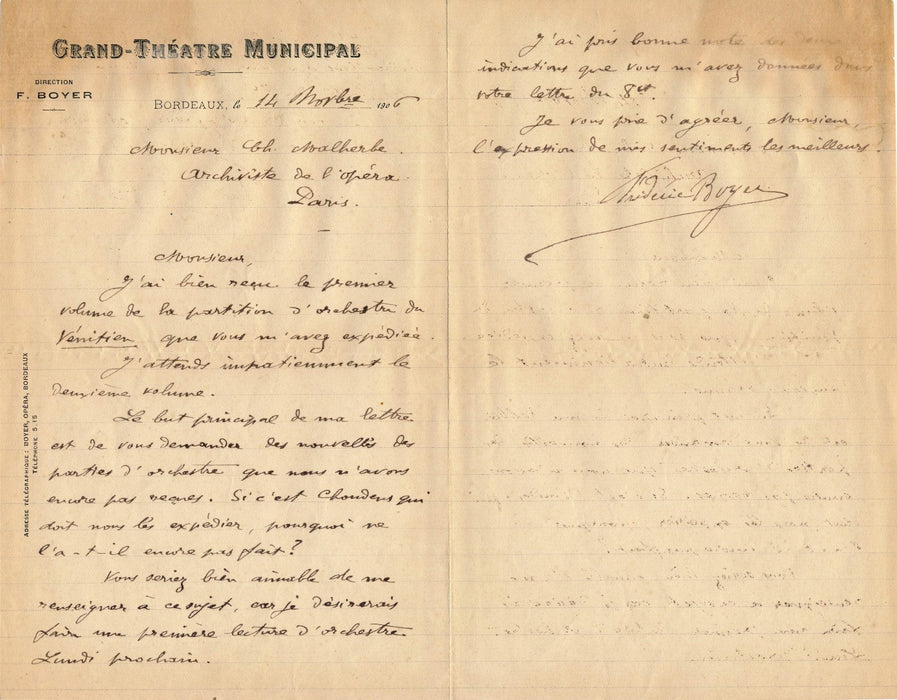 GRAND-THÉATRE MUNICIPAL
DIRECTION
F. BOYER
BORDEAUX, le 14 Novbre 1906
Monsieur Ch. Malherbe.
Archiviste de l'opéra.
Paris.
Monsieur,
J'ai bien reçu le premier
volume de la partition d'orchestre du
Vénitien, que vous m'avez expédiée.
J'attends impatiemment le
deuxième volume.
Le but principal de ma lettre
est de vous demander des nouvelles des
parties d'orchestre que nous n'avons
encore pas reçues. Si c'est Choudens qui
doit nous les expédier, pourquoi ne
l'a-t-il encore pas fait?
Vous seriez bien aimable de me
renseigner à ce sujet, car je désirerais
faire une première lecture d'orchestre
Lundi prochain.
ADRESSE TÉLÉGRAPHIQUE: BOYER, OPÉRA, BORDEAUX
TÉLÉPHONE 5.15
J'ai pris bonne note des deux
indications que vous m'avez données dans
votre lettre du 8ct.
Je vous prie d'agréer, Monsieur,
l'expression de mes sentiments les meilleurs.
Frédéric Boyer